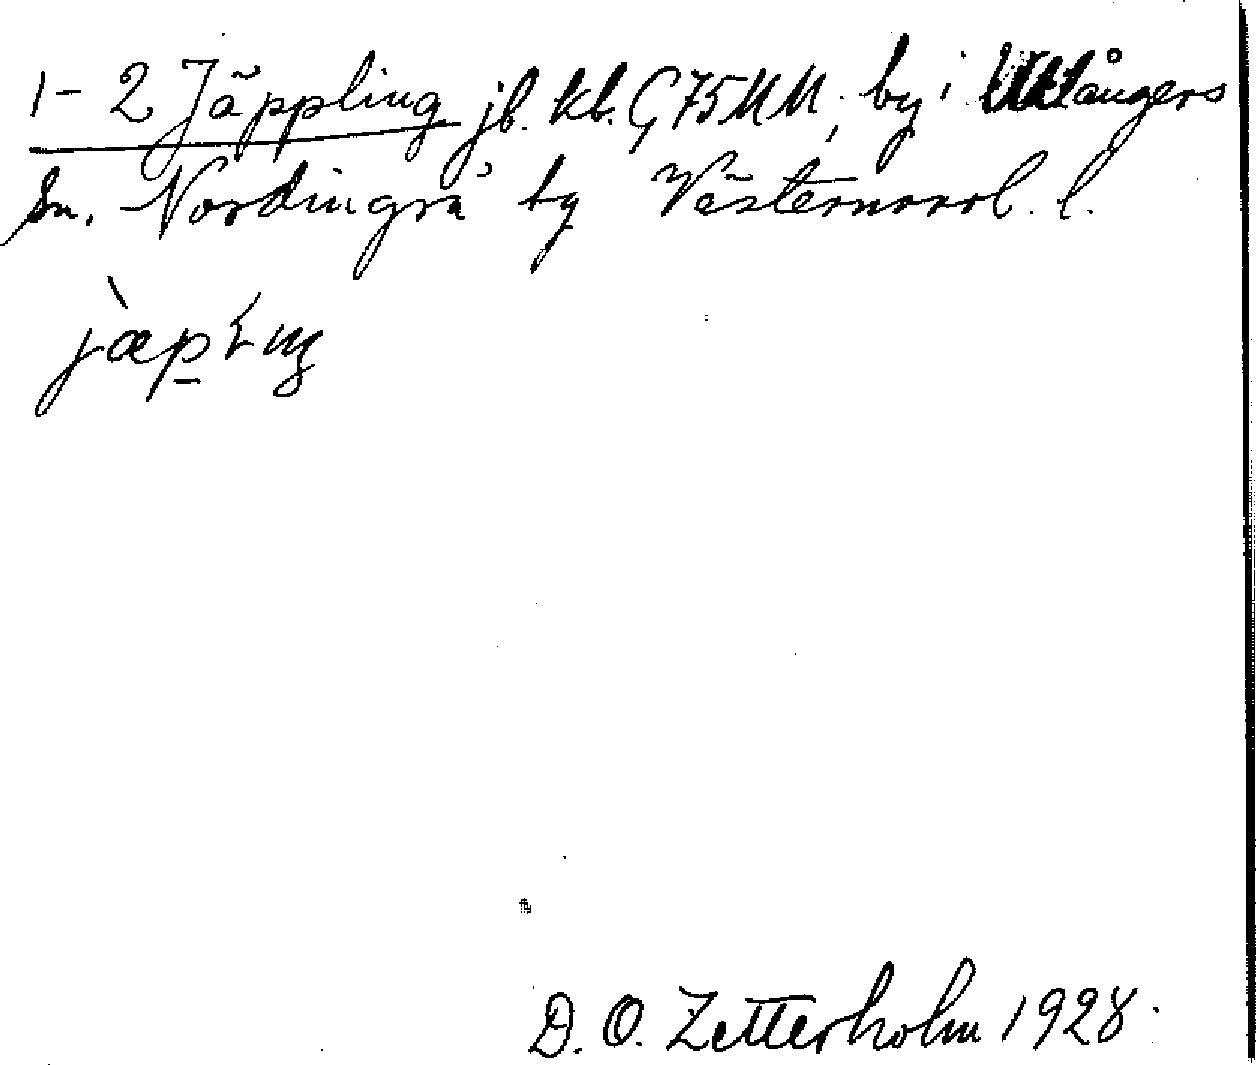 1-2 Jäppling jb. kb. G75NM, by i Ullångers
sn. Nordingrå tg Västernorrl. l.
D. O. Zetterholm 1928.